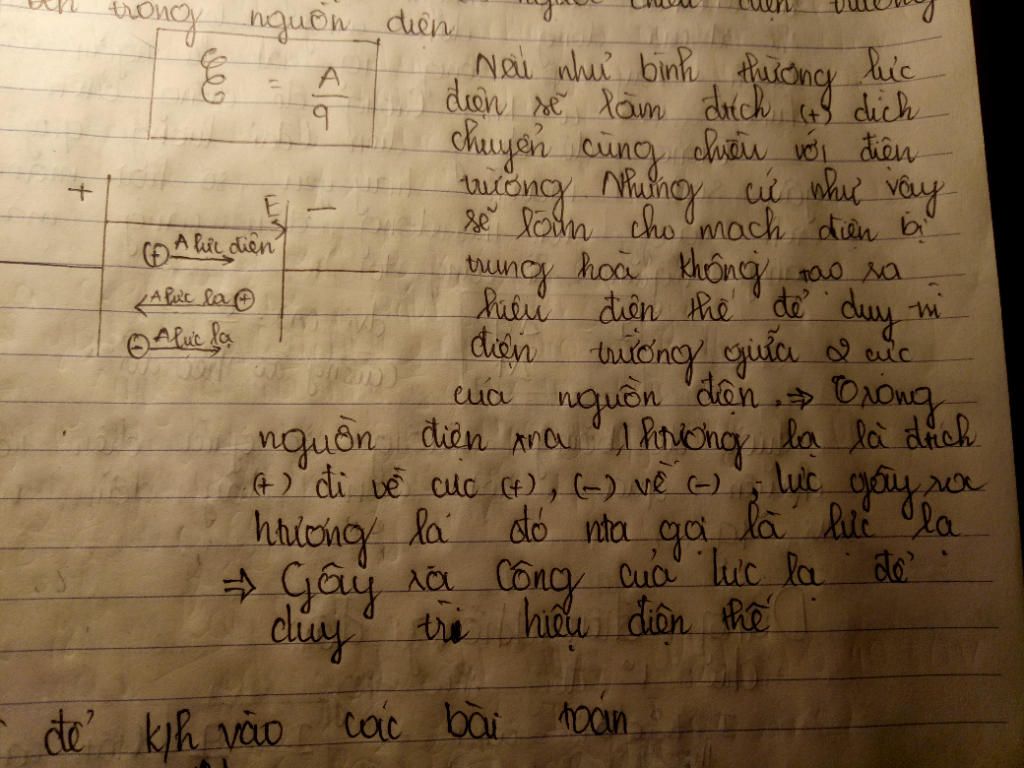 bên trong nguồn điện ngược chiều điện trường
ℰ = A/q
Nếu như bình thường lực
điện sẽ làm đtích (+) dịch
chuyển cùng chiều với điện
trường Nhưng cứ như vậy
sẽ làm cho mạch điện bị
trung hoà không tạo ra
hiệu điện thế để duy trì
điện trường giữa 2 cực
của nguồn điện. ⇒ Trong
+ E −
(+) A lực điện
A lực lạ (+)
(−) A lực lạ
nguồn điện xra 1 htượng lạ là đtích
(+) đi về cực (+), (−) về (−), lực gây ra
htượng lạ đó nta gọi là lực lạ
⇒ Gây ra Công của lực lạ để
duy trì hiệu điện thế
để k/h vào các bài toán